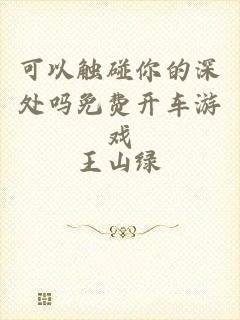 可以触碰你的深
处吗免费开车游
戏
王山绿